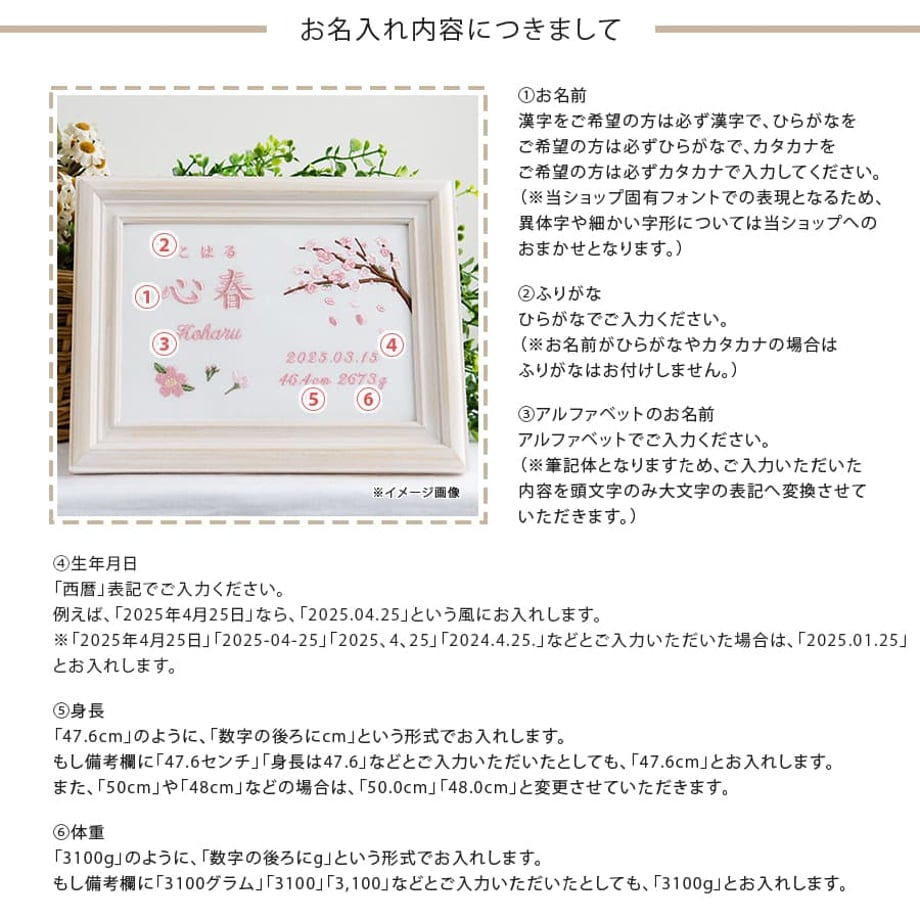 お名入れ内容につきまして
②
こはる
①
心春
③
Koharu
2025.03.15
④
46.4cm 2673g
⑤
⑥
※イメージ画像
①お名前
漢字をご希望の方は必ず漢字で、ひらがなを
ご希望の方は必ずひらがなで、カタカナを
ご希望の方は必ずカタカナで入力してください。
(※当ショップ固有フォントでの表現となるため、
異体字や細かい字形については当ショップへの
おまかせとなります。)
②ふりがな
ひらがなでご入力ください。
(※お名前がひらがなやカタカナの場合は
ふりがなはお付けしません。)
③アルファベットのお名前
アルファベットでご入力ください。
(※筆記体となりますため、ご入力いただいた
内容を頭文字のみ大文字の表記へ変換させて
いただきます。)
④生年月日
「西暦」表記でご入力ください。
例えば、「2025年4月25日」なら、「2025.04.25」という風にお入れします。
※「2025年4月25日」「2025-04-25」「2025、4、25」「2024.4.25.」などとご入力いただいた場合は、「2025.01.25」
とお入れします。
⑤身長
「47.6cm」のように、「数字の後ろにcm」という形式でお入れします。
もし備考欄に「47.6センチ」「身長は47.6」などとご入力いただいたとしても、「47.6cm」とお入れします。
また、「50cm」や「48cm」などの場合は、「50.0cm」「48.0cm」と変更させていただきます。
⑥体重
「3100g」のように、「数字の後ろにg」という形式でお入れします。
もし備考欄に「3100グラム」「3100」「3,100」などとご入力いただいたとしても、「3100g」とお入れします。